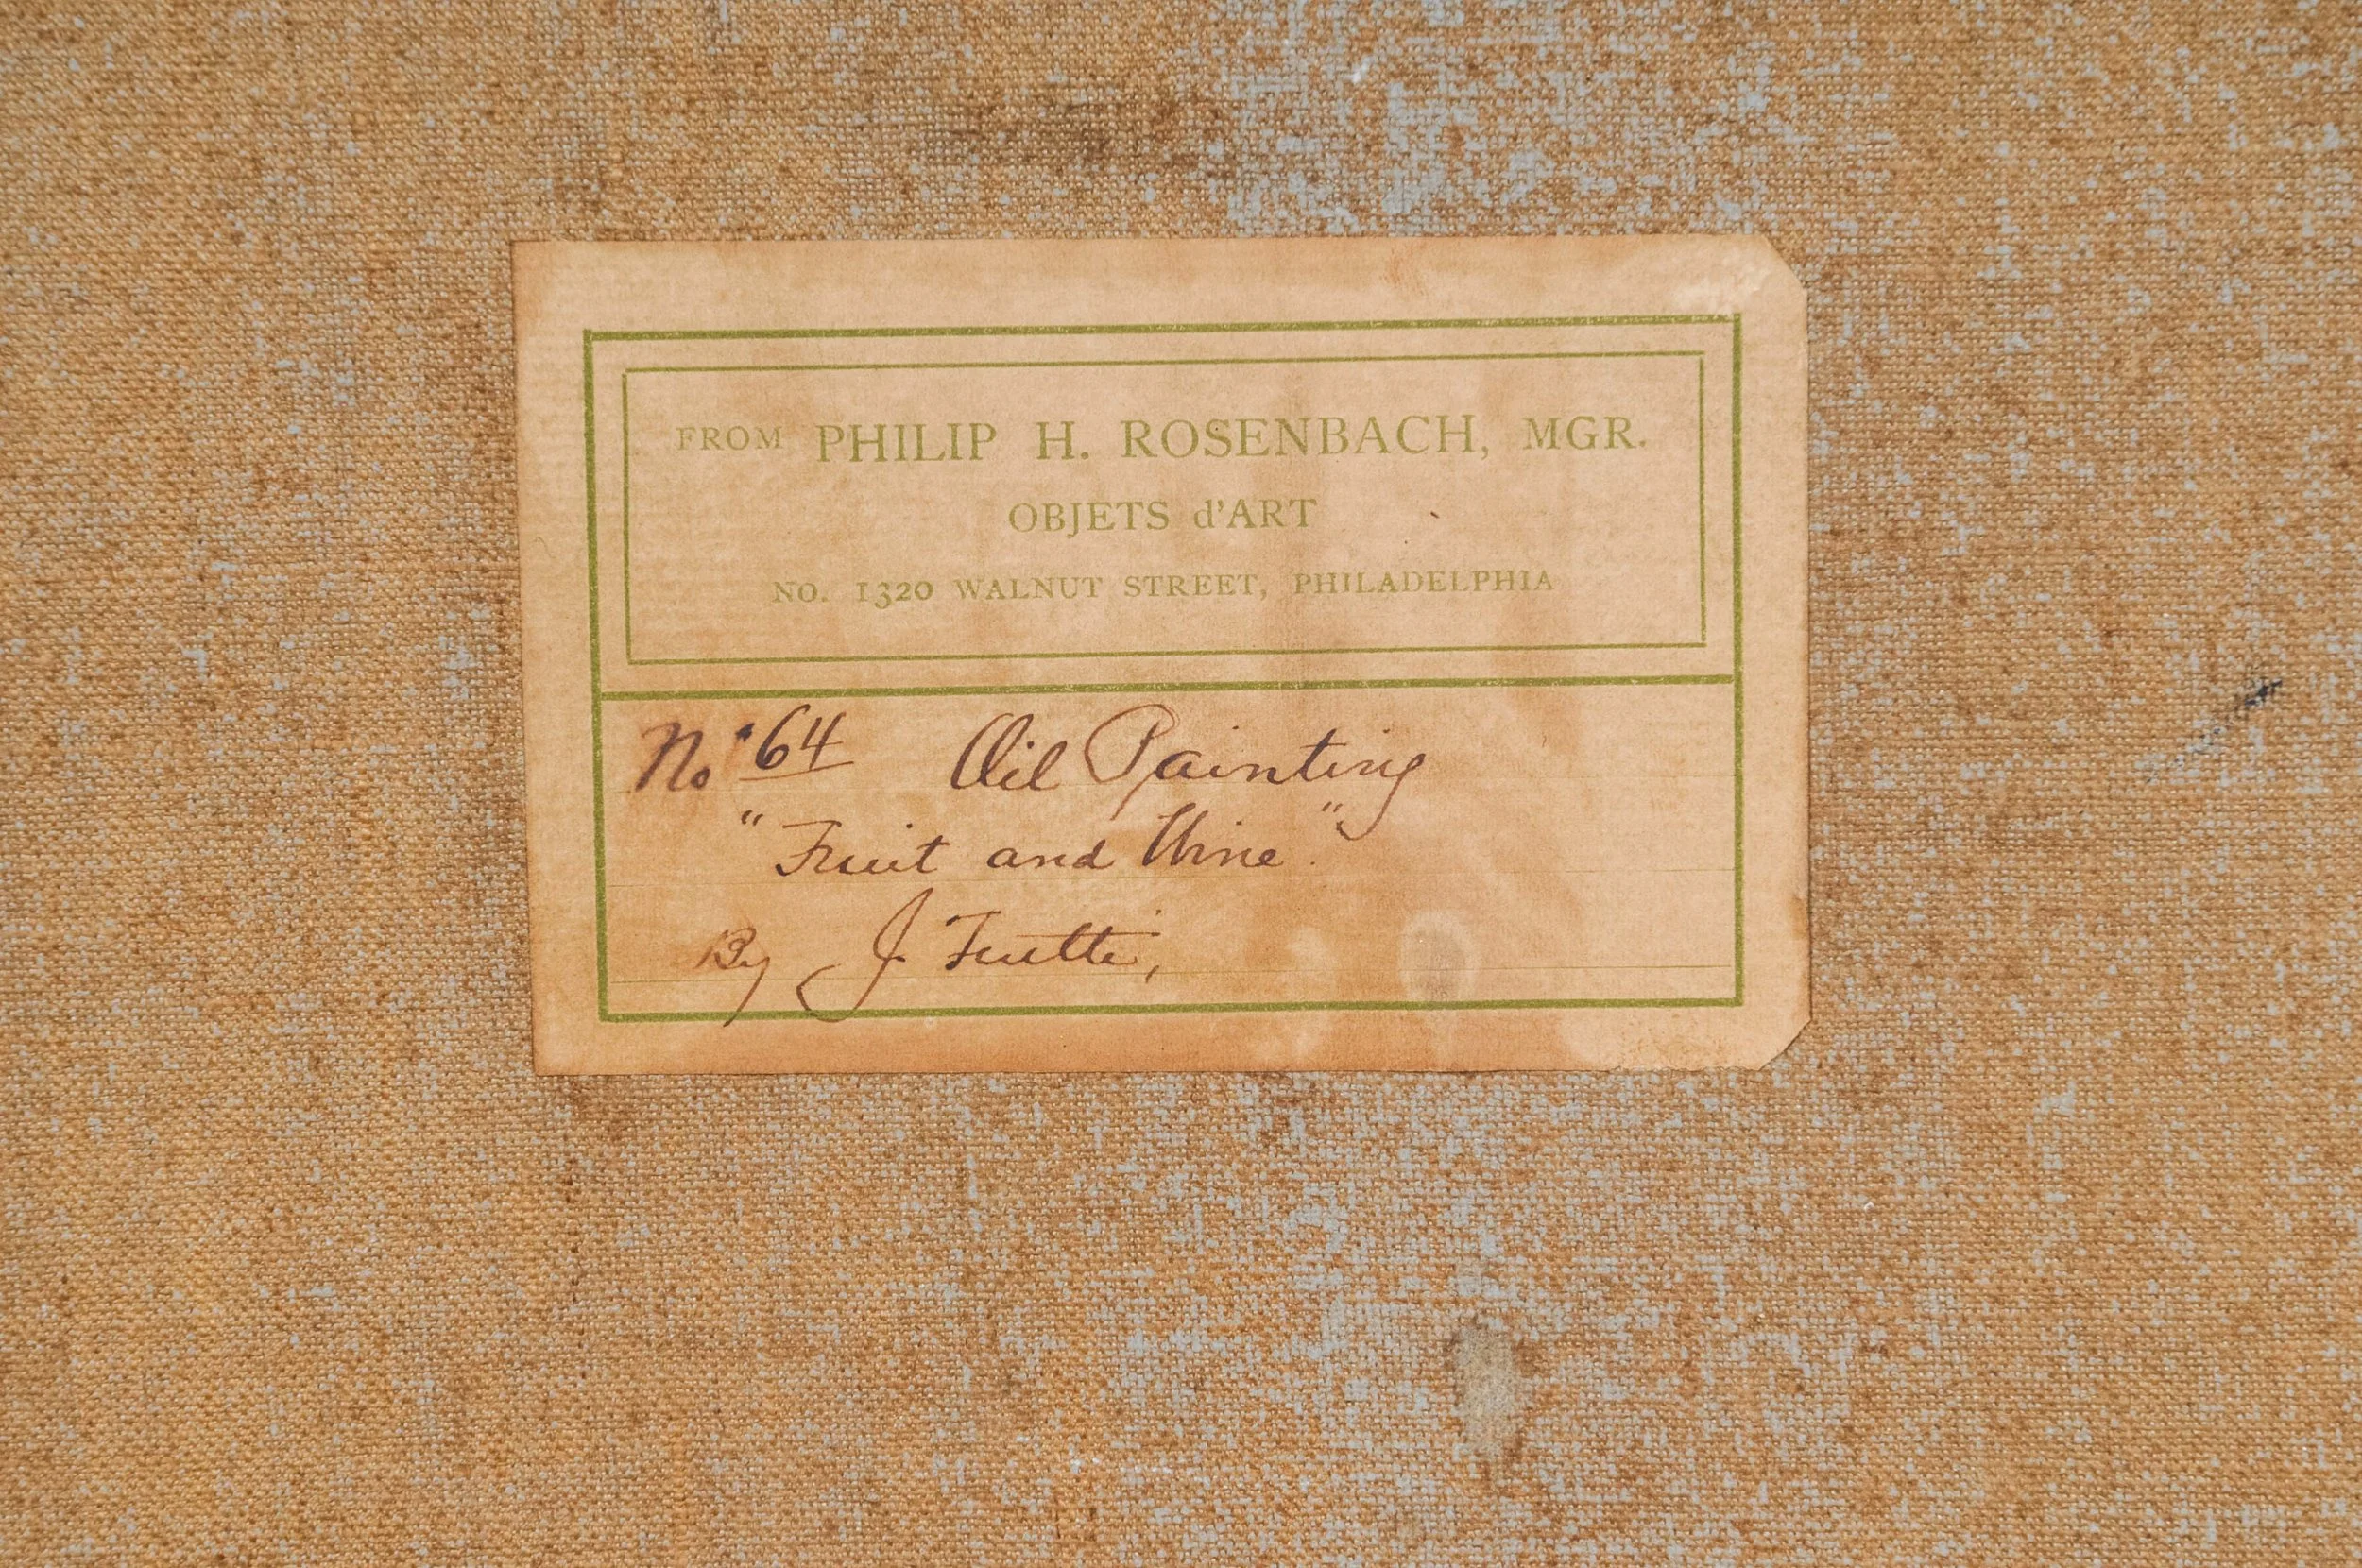 FROM PHILIP H. ROSENBACH, MGR.
OBJETS d'ART
NO. 1320 WALNUT STREET, PHILADELPHIA
No. 64 Oil Painting
"Fruit and Wine."
By J.